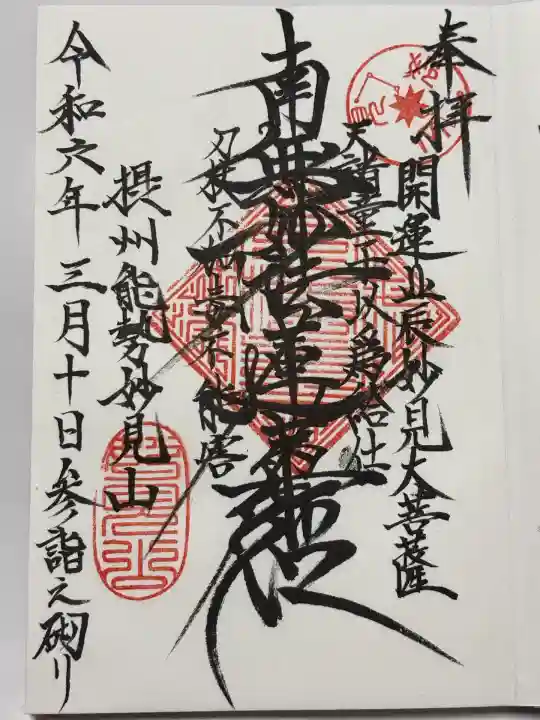 奉拝
開運北辰妙見大菩薩
天諸童子以為給仕
南無妙法蓮華経
刀杖不加毒不能害
摂州能勢妙見山
令和六年三月十日参詣之砌り